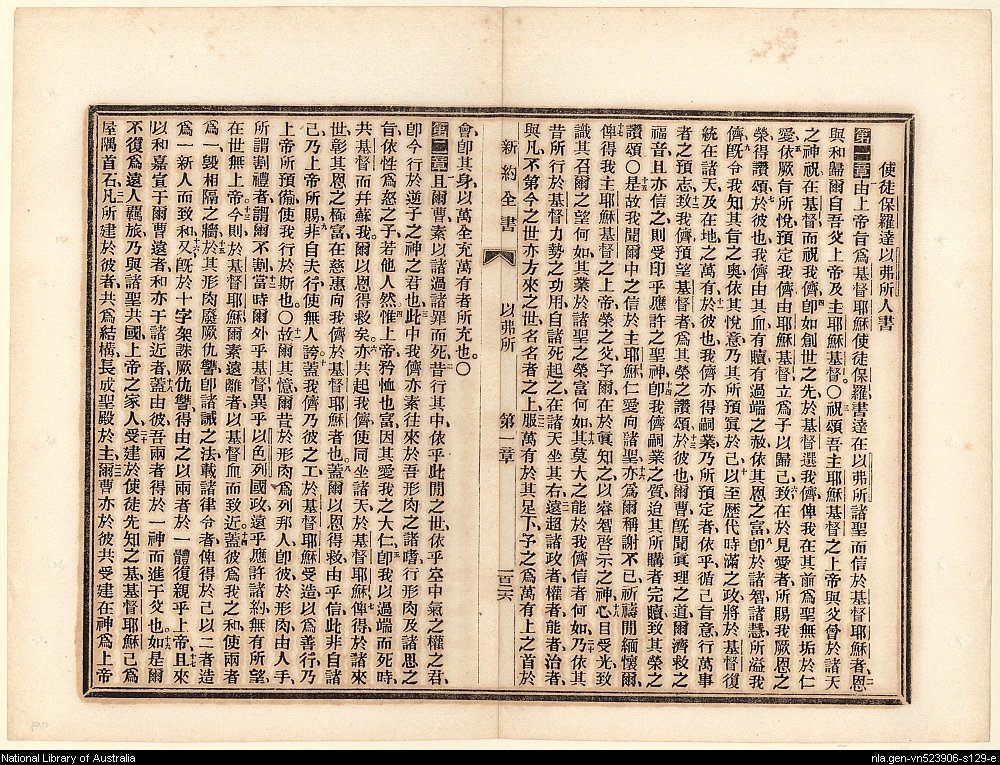 使徒保羅達以弗所人書
第一章由上帝旨爲基督耶穌使徒保羅書達在以弗所諸聖而信於基督耶穌者、恩
與和歸爾自吾父上帝及主耶穌基督。〇祝頌吾主耶穌基督之上帝與父曾於諸天
之神祝在基督而祝我儕、卽如創世之先於基督選我儕、俾我在其前爲聖無垢於仁
愛、依厥旨所悅預定我儕由耶穌基督立爲子以歸己、致在於見愛者所賜我厥恩之
榮得讚頌、於彼也我儕由其血有贖有過端之赦、依其恩之富、卽於諸智諸慧、所溢我
儕、旣令我知其旨之奧、依其悅意、乃其所預寘於己、以至歷代時滿之政、將於基督復
統在諸天及在地之萬有、於彼也我儕亦得嗣業、乃所預定者、依乎循己旨意行萬事
者之預志、致我儕預望基督者、爲其榮之讚頌、於彼也爾曹旣聞眞理之道、爾濟救之
福音、且亦信之、則受印乎應許之聖神、卽我儕嗣業之質、迨其所購者完贖、致其榮之
讚頌。〇是故我聞爾中之信於主耶穌、仁愛向諸聖、亦爲爾稱謝不已、祈禱間緬懷爾、
俾得我主耶穌基督之上帝榮之父、予爾在於眞知之以睿智啓示之神、心目受光、致
識其召爾之望何如、其業於諸聖之榮富何如、其莫大之能於我儕信者何如、乃依其
昔所行於基督力勢之功用、自諸死起之、在諸天坐其右、遠超諸政者權者能者治者、
與凡不第今之世、亦方來之世名名者之上、服萬有於其足下、予之爲萬有上之首於
新約全書
以弗所
第一章
一百六
會、卽其身、以萬全充萬有者所充也。〇
第二章且爾曹素以諸過諸罪而死、昔行其中、依乎此間之世、依乎空中氣之權之君、
卽今行於逆子之神之君也、此中我儕亦素往來於吾形肉之諸嗜、行形肉及諸思之
旨、依性爲怒之子、若他人然、惟上帝矜恤也富、因其愛我之大仁、卽我以過端而死時、
共基督而幷蘇我、爾以恩得救矣、亦共起我儕、使同坐諸天於基督耶穌、俾得於諸來
世彰其恩之極富、在慈惠向我儕於基督耶穌者也。蓋爾以恩得救、由乎信、此非自諸
己、乃上帝所賜、非自夫行、使無人誇、蓋我儕乃彼之工、於基督耶穌受造以爲善行、乃
上帝所預備使我行於斯也。〇故爾其憶爾昔於形肉爲列邦人、卽彼於形肉由人手、
所謂割禮者、謂爾不割、當時爾外乎基督、異乎以色列國政、遠乎應許諸約、無有所望、
在世無上帝、今則於基督耶穌、爾素遠離者、以基督血而致近、蓋彼爲我之和、使兩者
爲一、毀相隔之牆、於其形肉廢厥仇讐、卽諸誡之法載諸律令者、俾得於己以二者造
爲一新人而致和、又旣於十字架誅厥仇讐、得由之以兩者於一體復親乎上帝、且來
以和嘉宣于爾曹遠者、和亦于諸近者、蓋由彼吾兩者得於一神而進于父也、如是爾
不復爲遠人羈旅、乃與諸聖共國、上帝之家人、受建於使徒先知之基、基督耶穌己爲
屋隅首石、凡所建於彼者、共爲結構、長成聖殿於主、爾曹亦於彼共受建、在神爲上帝
National Library of Australia
nla.gen-vn523906-s129-e